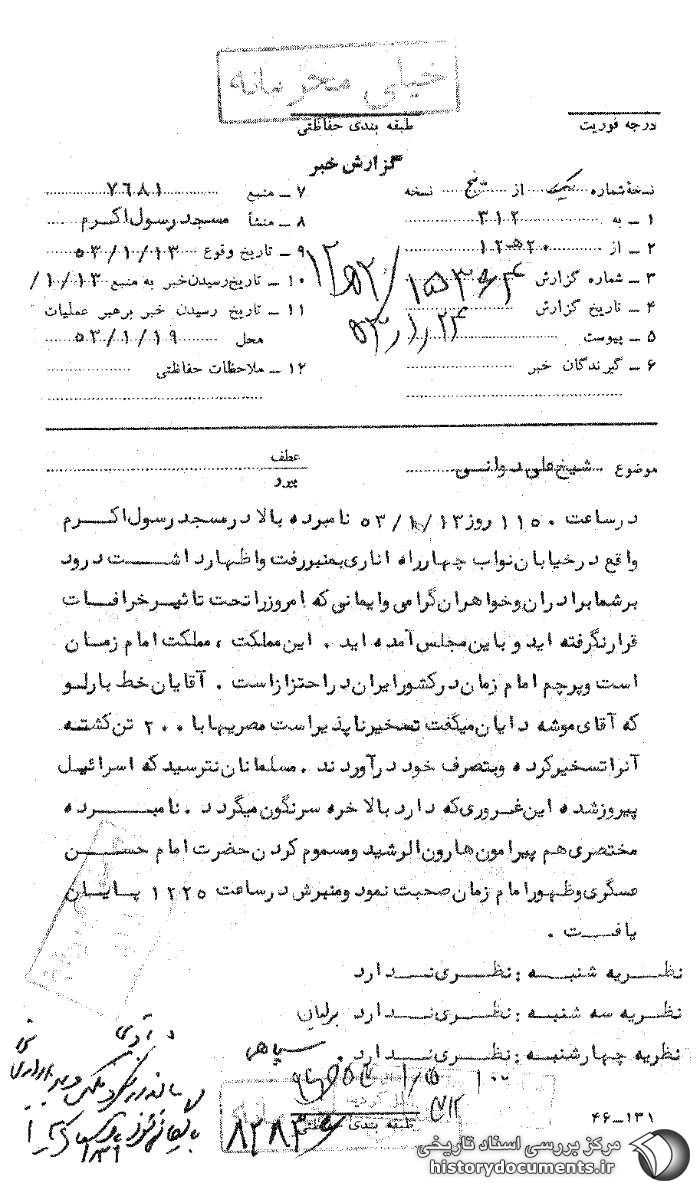 خیلی محرمانه
درجه فوریت
طبقه بندی حفاظتی
گزارش خبر
نسخهٔ شماره یک از پنج نسخه
۱ ـ به ۳۱۲
۲ ـ از ۲۰ هـ ۱۲
۳ ـ شماره گزارش
۴ ـ تاریخ گزارش ۵۳/۱/۲۴
۵ ـ پیوست
۶ ـ گیرندگان خبر
۷ ـ منبع ۷۶۸۱
۸ ـ منشأ مسجد رسول اکرم
۹ ـ تاریخ وقوع ۵۳/۱/۱۳
۱۰ ـ تاریخ رسیدن خبر به منبع ۱/۱۳/
۱۱ ـ تاریخ رسیدن خبر برهبر عملیات
محل ۵۳/۱/۱۹
۱۲ ـ ملاحظات حفاظتی
موضوع شیخ علی دوانی
عطف
پیرو
در ساعت ۱۱۵۰ روز ۵۳/۱/۱۳ نامبرده بالا در مسجد رسول اکرم
واقع در خیابان نواب چهارراه اناری بمنبر رفت و اظهار داشت درود
بر شما برادران و خواهران گرامی و ایمانی که امروز را تحت تاثیر خرافات
قرار نگرفته اید و باین مجلس آمده اید . این مملکت ، مملکت امام زمان
است و پرچم امام زمان در کشور ایران در احتزاز است . آقایان خط بارلو
که آقای موشه دایان میگفت تسخیر ناپذیر است مصریها با ۲۰۰ تن کشته
آنرا تسخیر کرده و بتصرف خود در آوردند . مسلمانان نترسید که اسرائیل
پیروز شده این غروری که دارد بالاخره سرنگون میگردد . نامبرده
مختصری هم پیرامون هارون الرشید و مسموم کردن حضرت امام حسن
عسگری و ظهور امام زمان صحبت نمود و منبرش در ساعت ۱۲۲۵ پایان
یافت .
نظریه شنبه : نظری ندارد
نظریه سه شنبه : نظری ندارد
نظریه چهارشنبه : نظری ندارد . سپاهی
طبقه بندی حفاظتی
۱۳۱ــ۴۶
مرکز بررسی اسناد تاریخی
historydocuments.ir